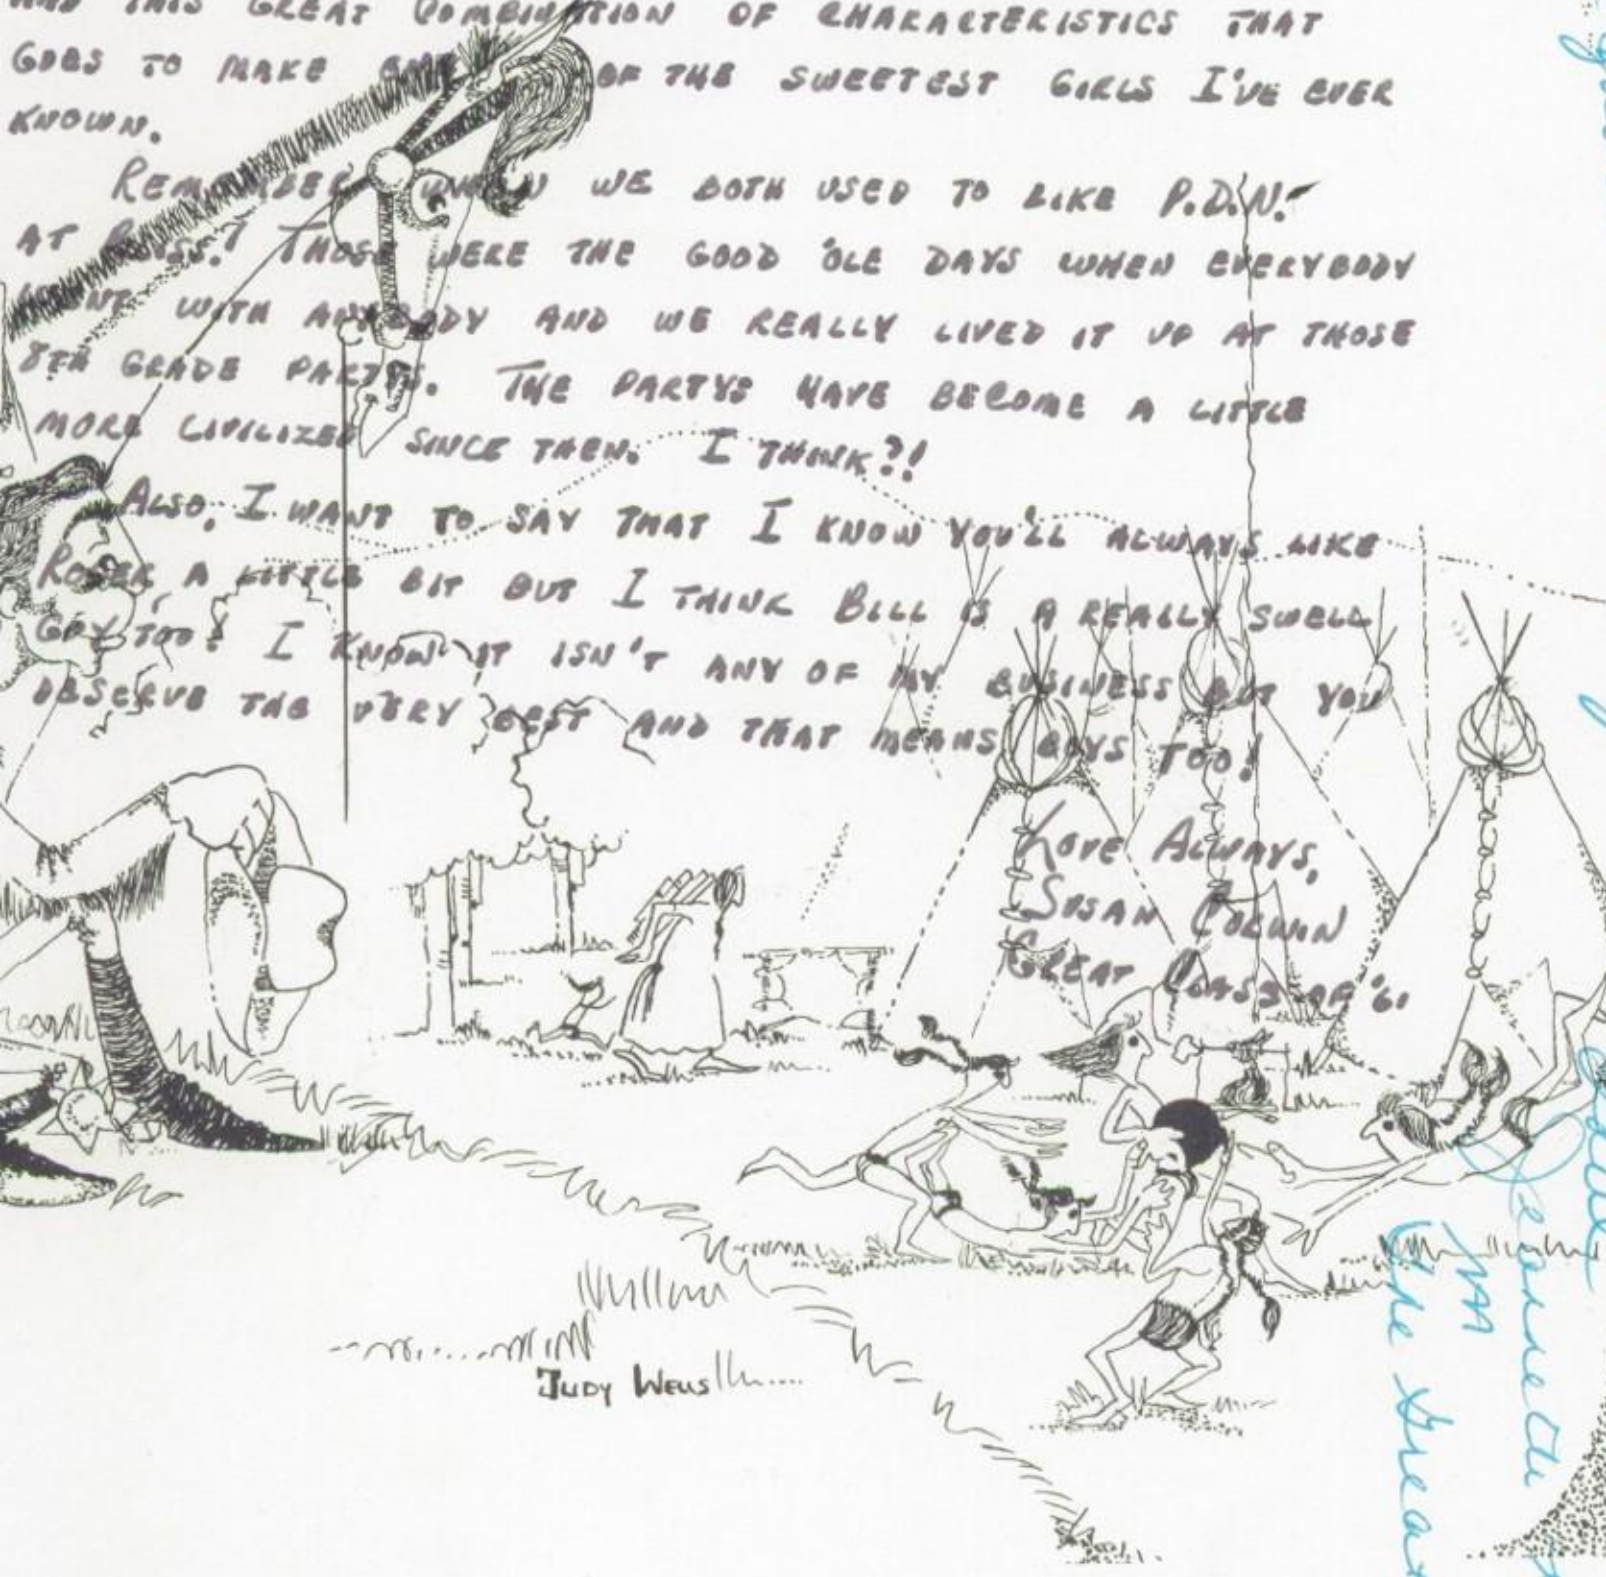 AND THIS GREAT COMBINATION OF CHARACTERISTICS THAT
GOES TO MAKE ONE OF THE SWEETEST GIRLS I'VE EVER
KNOWN.
REMEMBER WHEN WE BOTH USED TO LIKE P.D.N.
AT BLISS! THOSE WERE THE GOOD 'OLE DAYS WHEN EVERYBODY
WENT WITH ANYBODY AND WE REALLY LIVED IT UP AT THOSE
8TH GRADE PARTYS. THE PARTYS HAVE BECOME A LITTLE
MORE CIVILIZED SINCE THEN. I THINK?!
ALSO, I WANT TO SAY THAT I KNOW YOU'LL ALWAYS LIKE
ROGER A LITTLE BIT BUT I THINK BILL IS A REALLY SWELL
GUY TOO! I KNOW IT ISN'T ANY OF MY BUSINESS BUT YOU
DESERVE THE VERY BEST AND THAT MEANS BOYS TOO!
LOVE ALWAYS,
SUSAN CORWIN
GREAT CLASS OF '61
JUDY WELLS
Jeannette
The Great